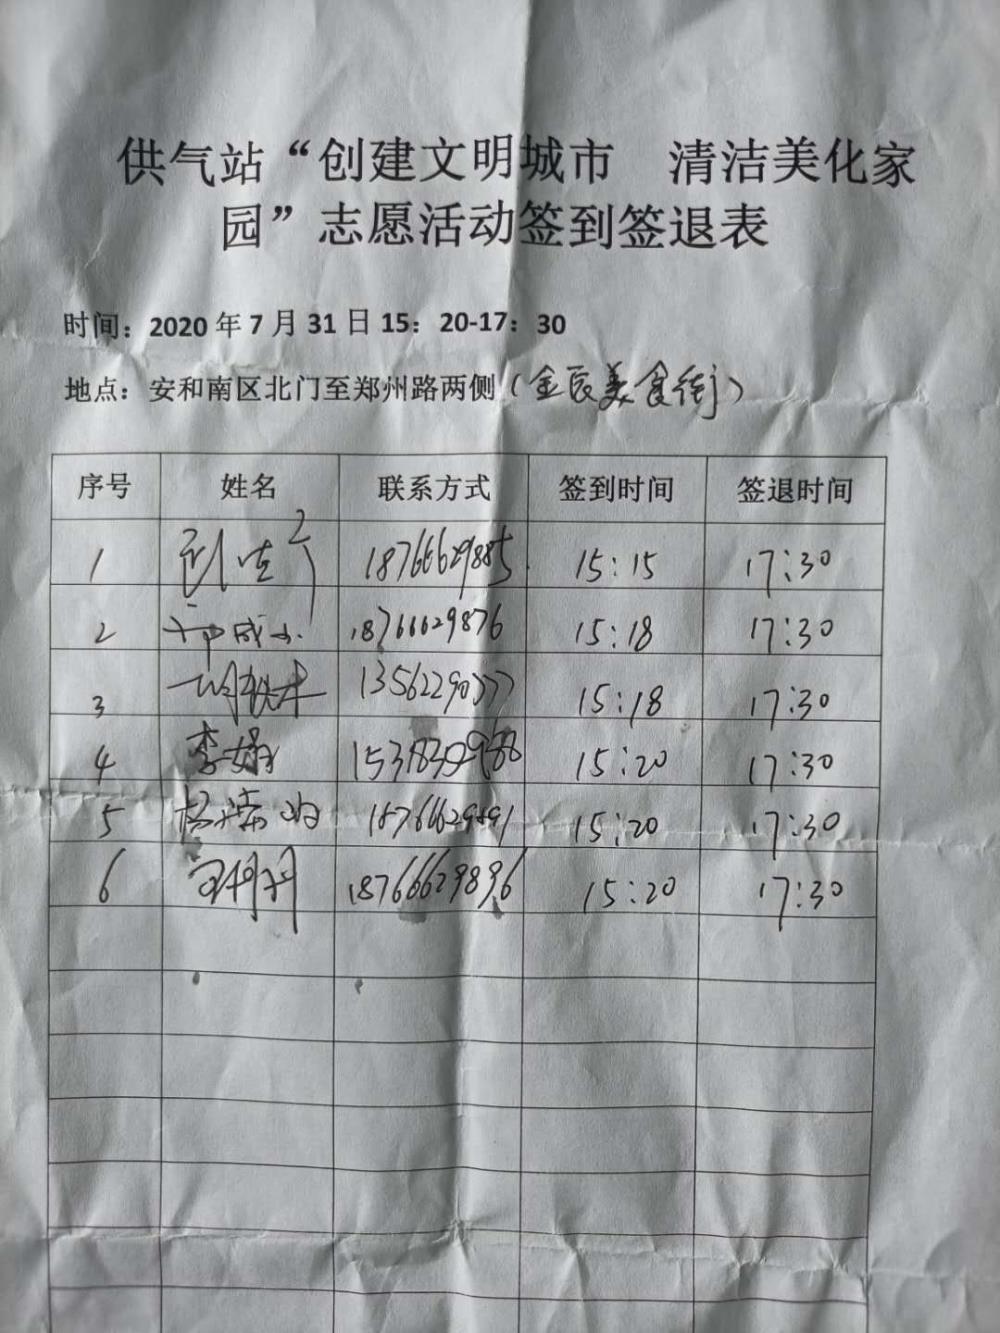 供气站“创建文明城市 清洁美化家
园”志愿活动签到签退表
时间：2020 年 7 月 31 日 15：20-17：30
地点：安和南区北门至郑州路两侧（金辰美食街）
序号 姓名 联系方式 签到时间 签退时间
1 18766629885 15:15 17:30
2 18766629876 15:18 17:30
3 15:18 17:30
4 李娟 15:20 17:30
5 18766629891 15:20 17:30
6 18766629896 15:20 17:30